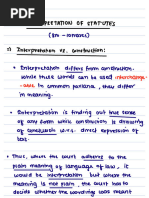 INTERPRETATION OF STATUTES
(8M - 10MARKS)
1) Interpretation vs. Construction:
• Interpretation differs from construction.
While these words can be used interchange
-able in common parlance, they differ
in meaning.
• Interpretation is finding out true sense
of any form while construction is drawing
of conclusion w.r.t. direct expression of
law.
• Thus, when the court adhering to the
plain meaning of language of law, it
would be interpretation but where the
meaning is not plain, the court has to
decide whether the wordings was meant